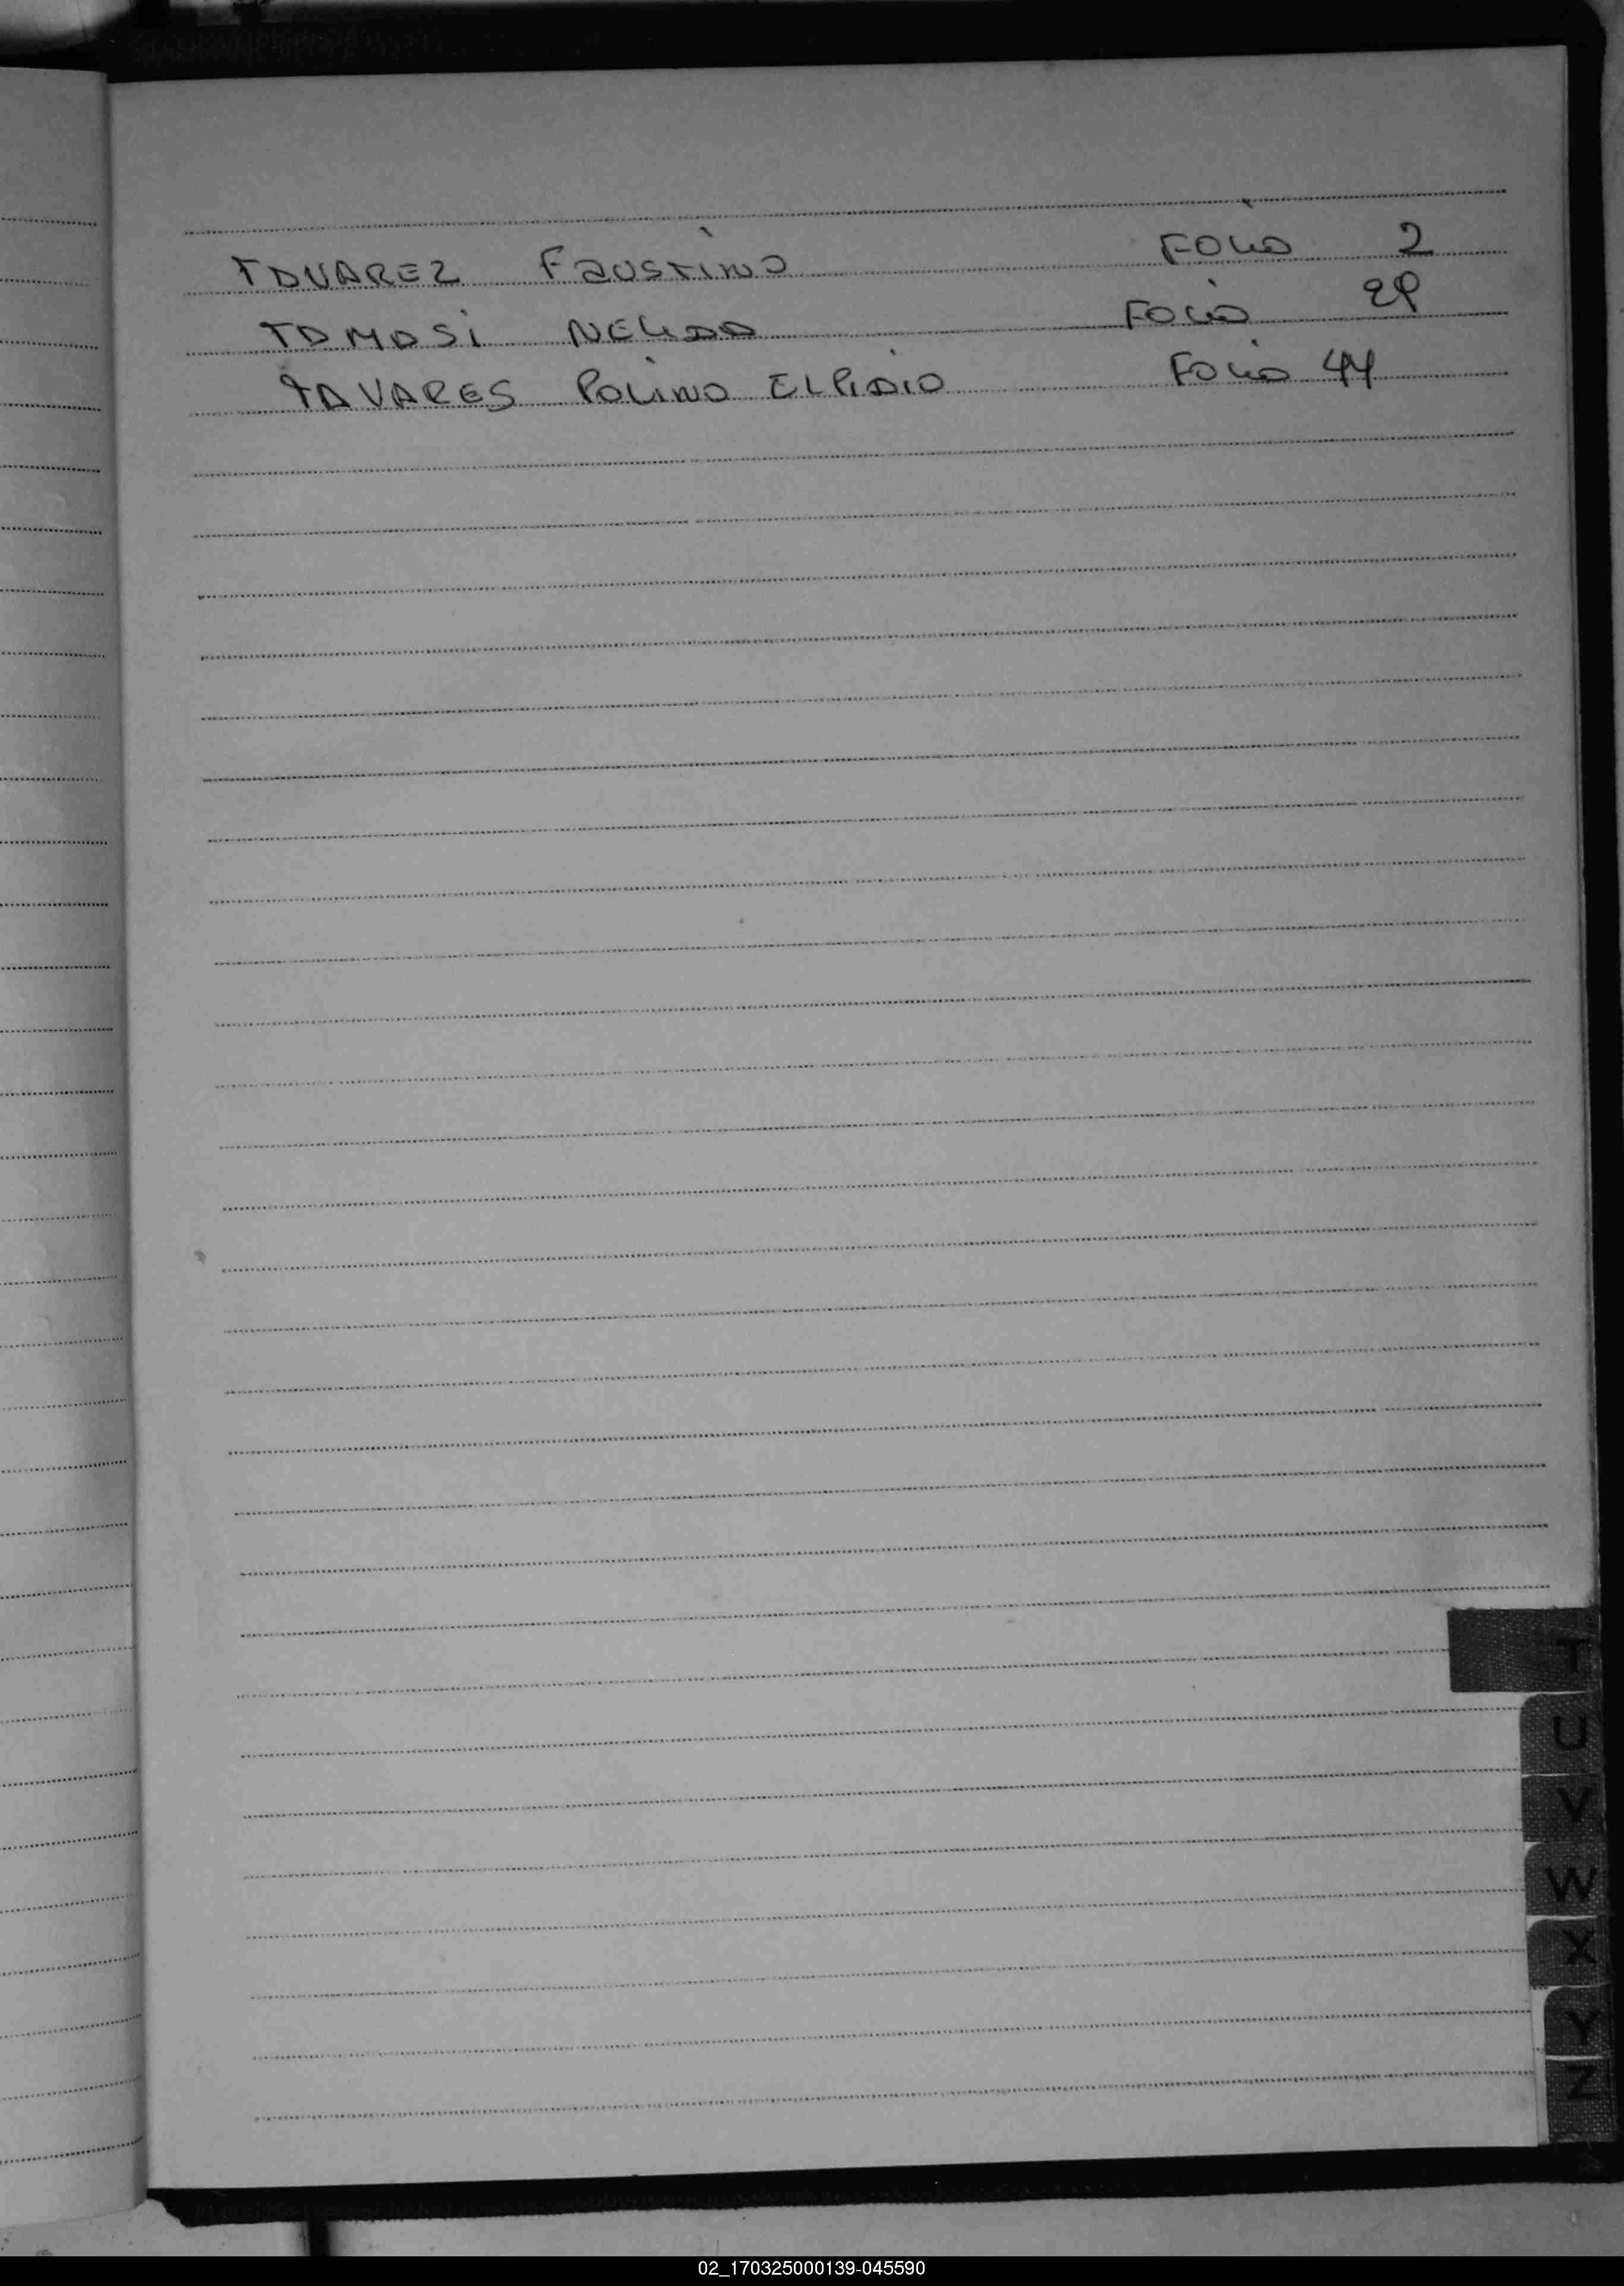 TAVAREZ FAUSTINO FOLIO 2
TOMASI NELIDA FOLIO 29
TAVARES POLINO ELPIDIO FOLIO 44
T
U
V
W
X
Y
Z
02_170325000139-045590